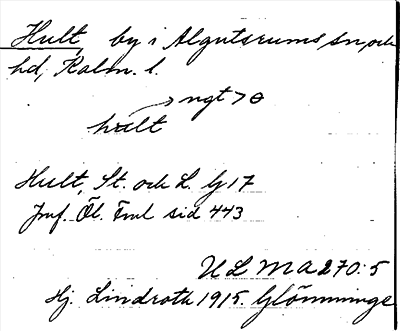 Hult, by i Algutsrums sn, och
hd, Kalm. l.
→ ngt > ɵ
hult
Hult, St. och L. G 17
Jmf. Öl. Fml sid 443
ULMA 270:5
Hj. Lindroth 1915. Glömminge